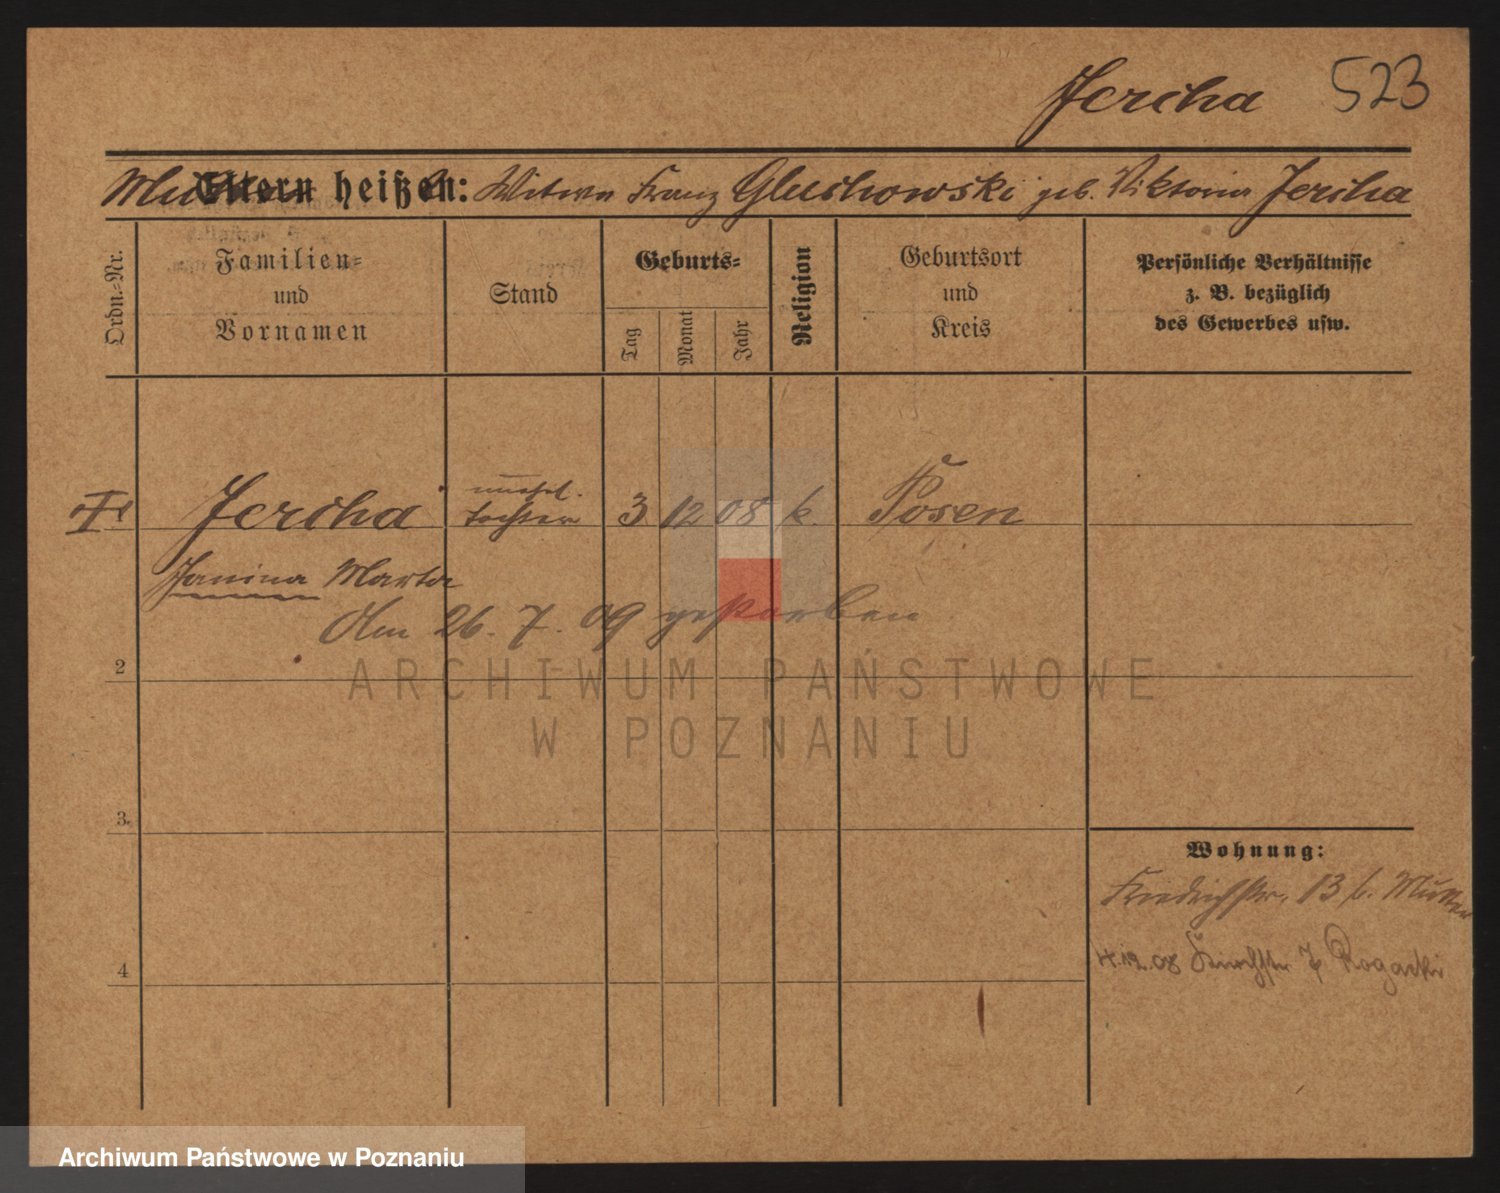 Jericha 523
Mutter Eltern heißen: Witwe Franz Gluchowski geb. Viktoria Jericha
Ordn.-Nr.
Familien-
und
Vornamen
Stand
Geburts-
Tag
Monat
Jahr
Religion
Geburtsort
und
Kreis
Persönliche Verhältnisse
z. B. bezüglich
des Gewerbes usw.
unehel.
1 Jericha Tochter 3 12 08 k Posen
Janina Marta
Am 26. 7. 09 gestorben
2
ARCHIWUM PAŃSTWOWE
W POZNANIU
3.
Wohnung:
Friedrichstr. 13 b. Mutter
4.12.08 7 Rogacki
4
Archiwum Państwowe w Poznaniu